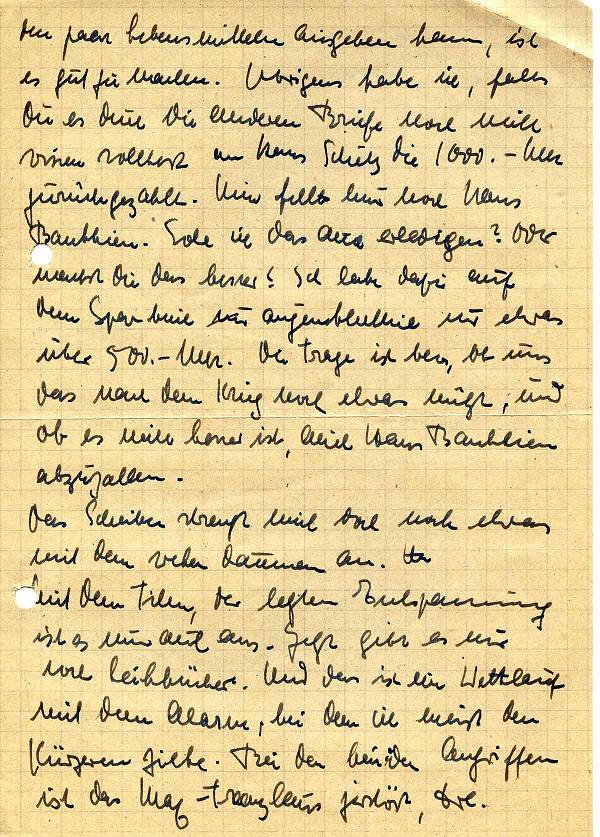 den paar Lebensmitteln ausgeben kann, ist
es gut zu machen. Übrigens habe ich, falls
Du es durch die anderen Briefe noch nicht
wissen solltest an Hans Schütz die 1000.- Mk
zurückgezahlt. Nun fehlt nur noch Hans
Soll ich das auch erledigen? Oder
machst Du das besser? Ich habe dafür auf
dem Sparbuch nur augenblicklich nur etwas
über 500.- Mk. Die Frage ist bloß, ob uns
das nach dem Krieg noch etwas nützt, und
ob es nicht besser ist, auch Hans
abzuzahlen.
Das Schreiben strengt mich doch noch etwas
mit dem wehen Daumen an.
Mit dem Film, der letzten Entspannung
ist es nun auch aus. Jetzt gibt es nur
noch Leihbücher. Und das ist ein Wettlauf
mit dem Alarm, bei dem ich meist den
Kürzeren ziehe. Bei den beiden Angriffen
ist das zerstört,